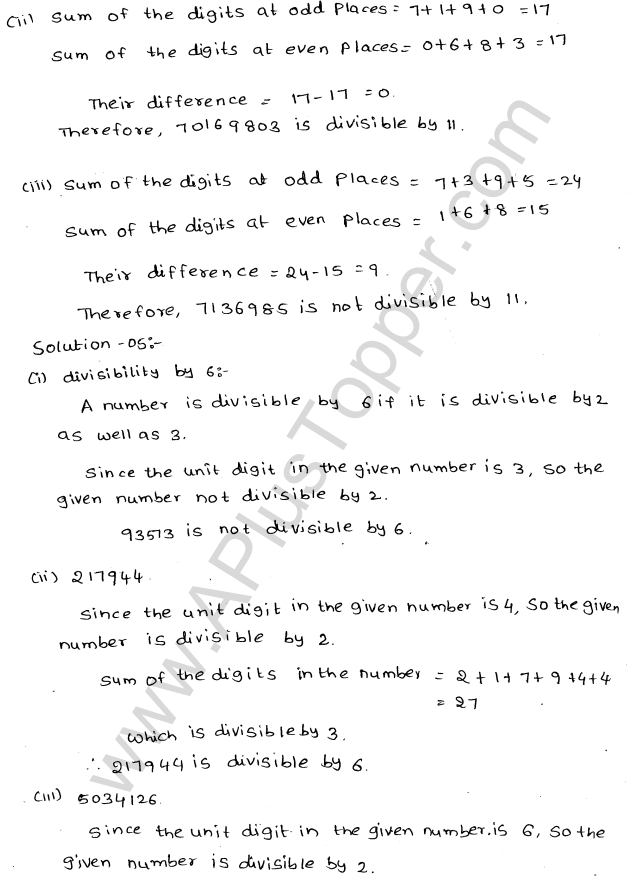 (ii) Sum of the digits at odd places = 7+1+9+0 = 17
Sum of the digits at even places = 0+6+8+3 = 17
Their difference = 17-17 = 0.
Therefore, 70169803 is divisible by 11.
(iii) Sum of the digits at odd places = 7+3+9+5 = 24
Sum of the digits at even places = 1+6+8 = 15
Their difference = 24-15 = 9.
Therefore, 7136985 is not divisible by 11.
Solution-05:-
(i) divisibility by 6:-
A number is divisible by 6 if it is divisible by 2
as well as 3.
Since the unit digit in the given number is 3, so the
given number not divisible by 2.
93573 is not divisible by 6.
(ii) 217944
Since the unit digit in the given number is 4, so the given
number is divisible by 2.
Sum of the digits in the number = 2+1+7+9+4+4
= 27
which is divisible by 3.
∴ 217944 is divisible by 6.
(iii) 5034126.
Since the unit digit in the given number.is 6, so the
given number is divisible by 2.
www.APlusTopper.com